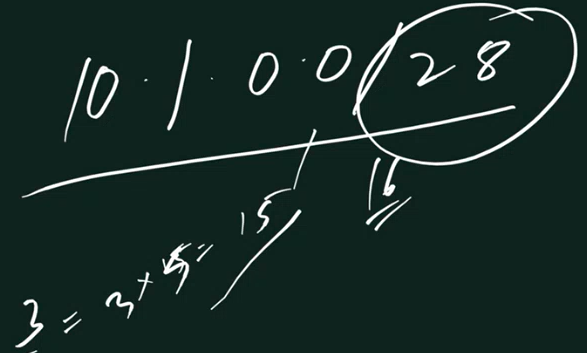 10.1.0.0/28
16
3 = 3 + 5 = 15